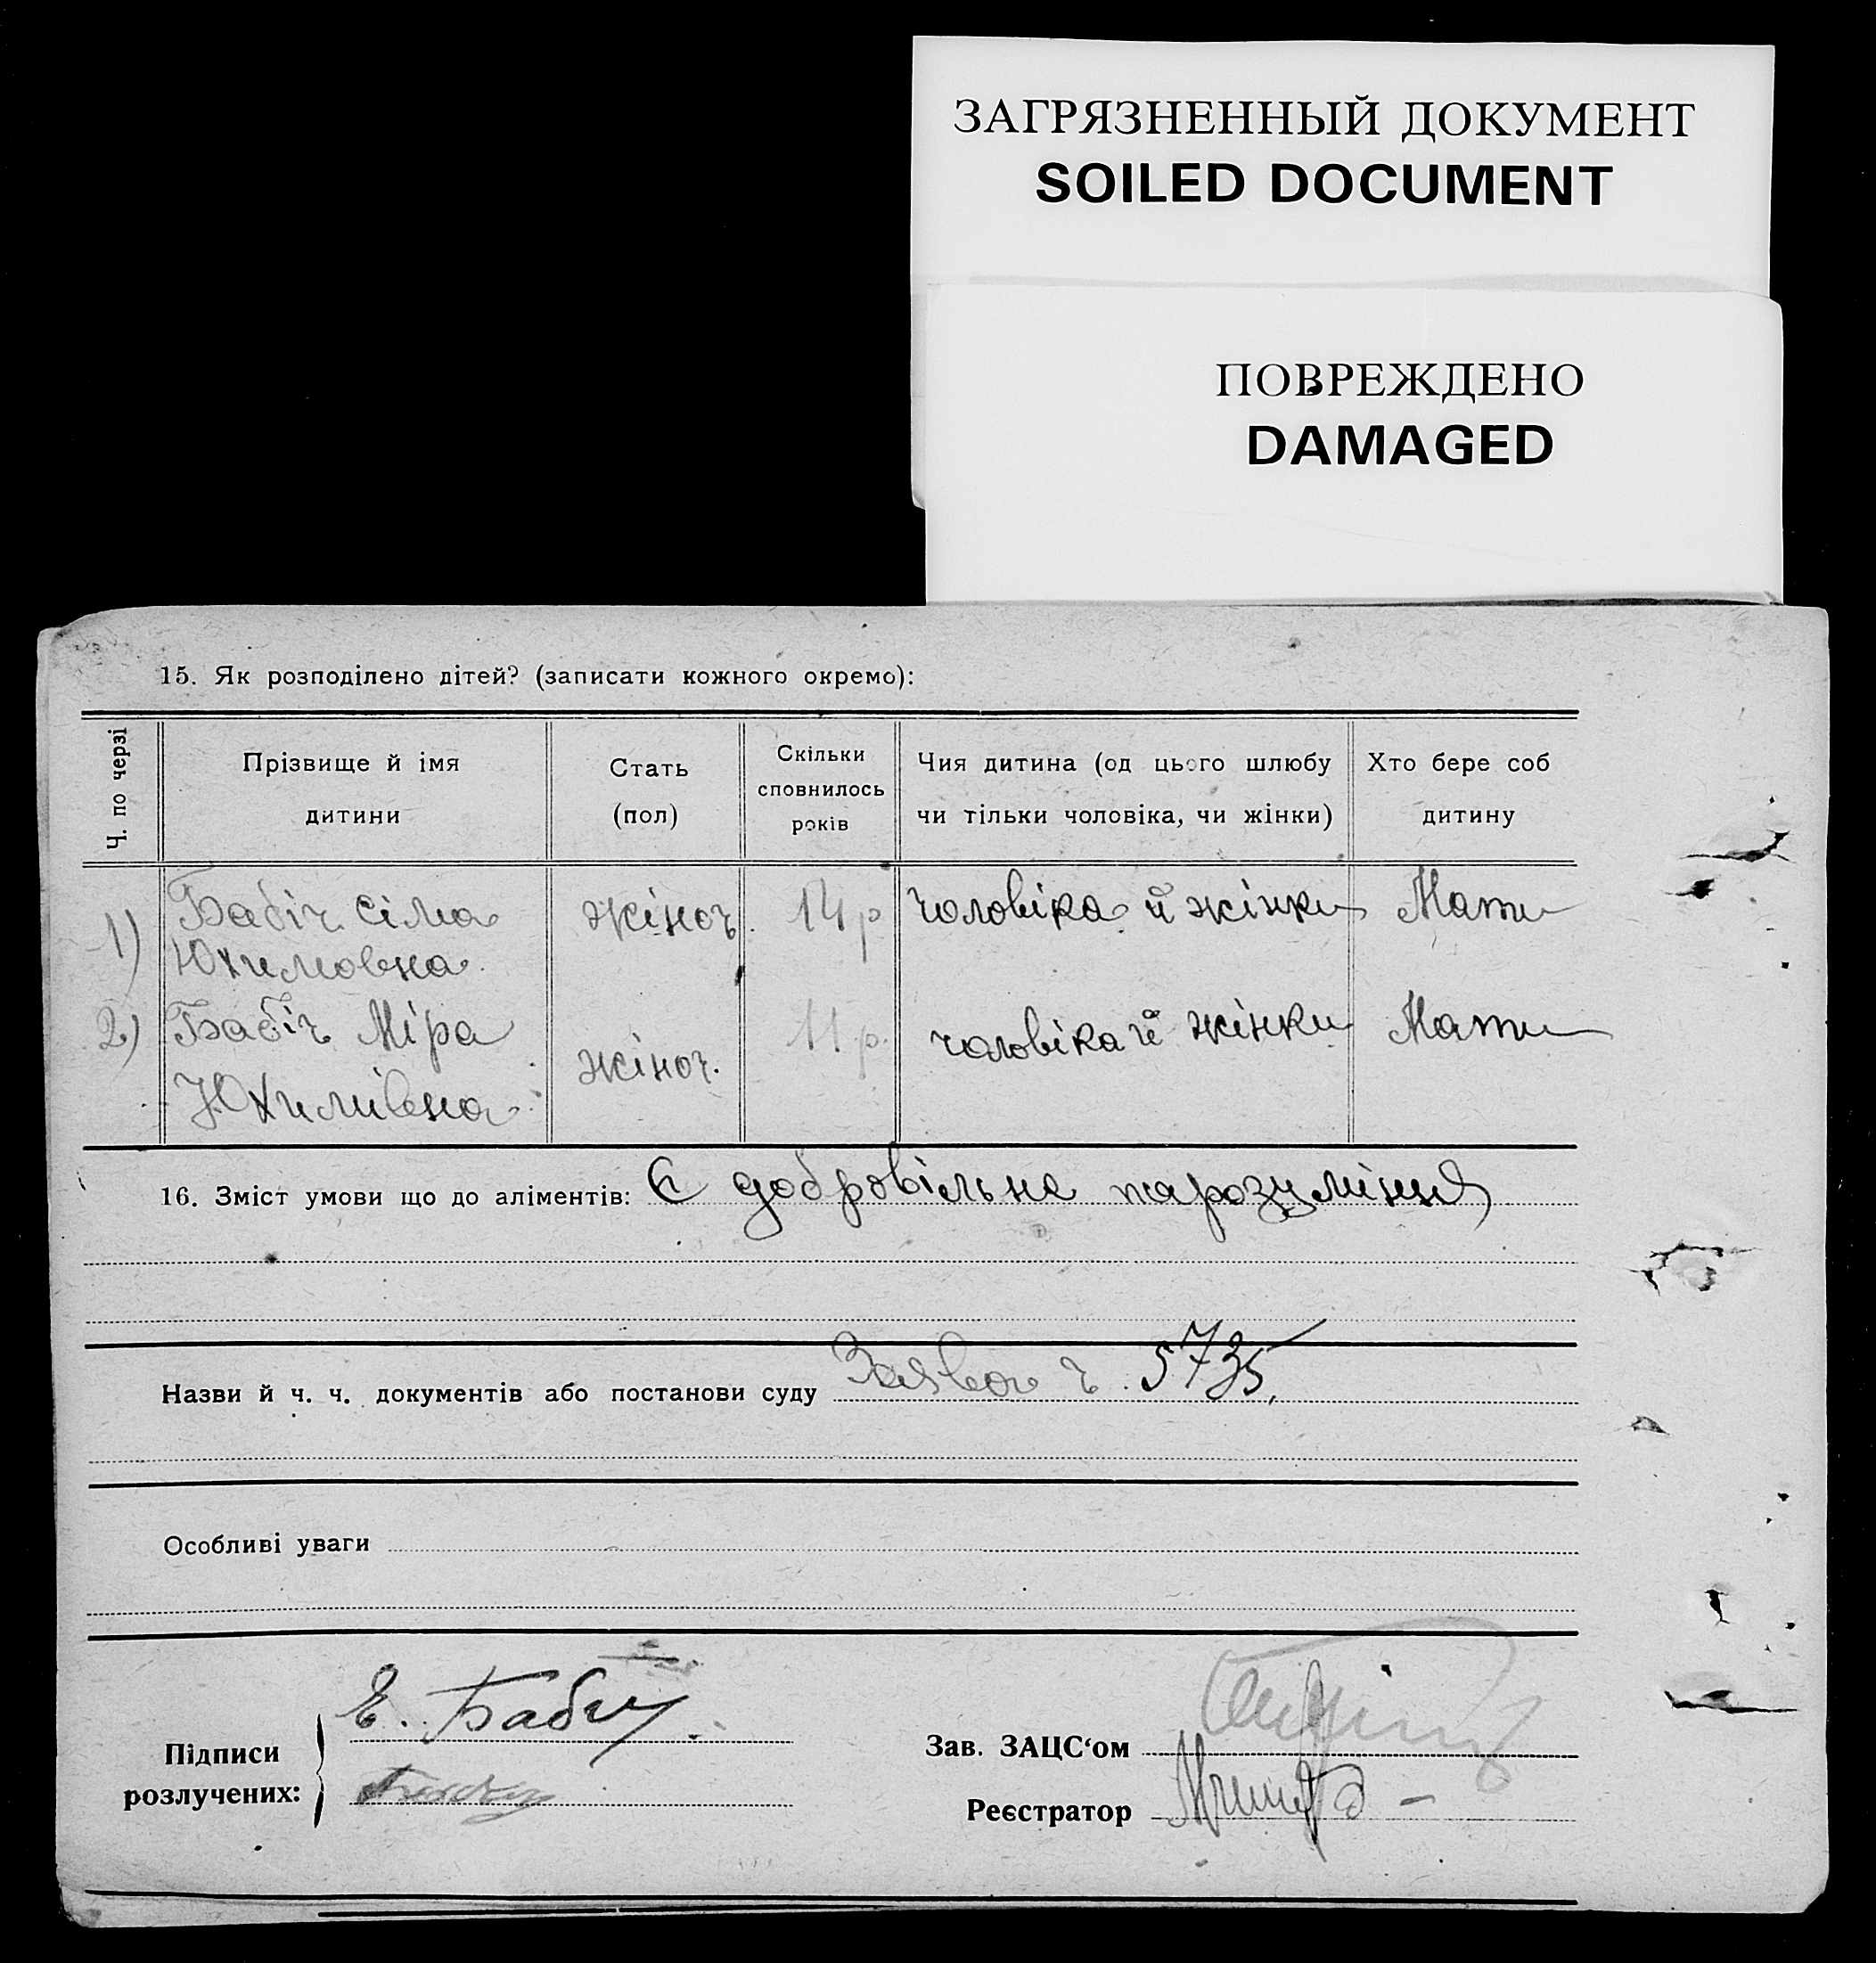 ЗАГРЯЗНЕННЫЙ ДОКУМЕНТ
SOILED DOCUMENT
ПОВРЕЖДЕНО
DAMAGED
15. Як розподілено дітей? (записати кожного окремо):
Ч. по черзі
Прізвище й імя
дитини
Стать
(пол)
Скільки
сповнилось
років
Чия дитина (од цього шлюбу
чи тільки чоловіка, чи жінки)
Хто бере соб
дитину
1) Бабіч Сіма жіноч. 14 р чоловіка й жінки Мати
Юхимовна
2) Бабіч Міра жіноч. 11 р. чоловіка й жінки Мати
Юхимівна
16. Зміст умови що до аліментів: Є добровільне парозуміння
Назви й ч. ч. документів або постанови суду Заява ч. 5735
Особливі уваги
Підписи
розлучених:
Е. Бабич
Зав. ЗАЦС‘ом
Реєстратор